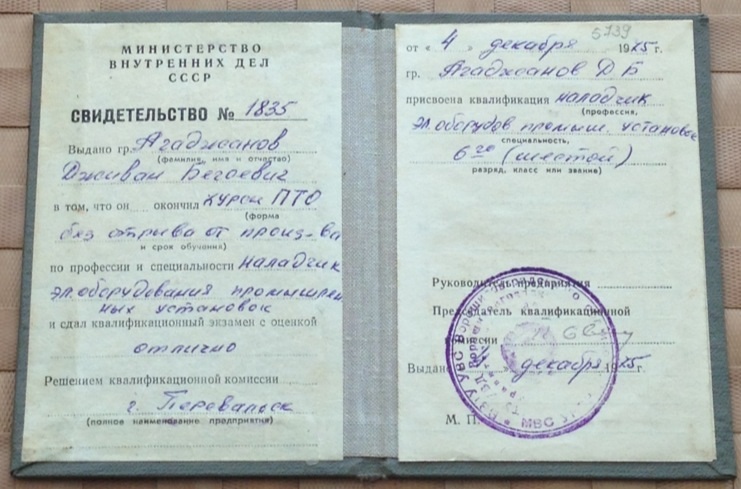 МИНИСТЕРСТВО
ВНУТРЕННИХ ДЕЛ
СССР
СВИДЕТЕЛЬСТВО № 1835
Выдано гр. Агаджанов
(фамилия, имя и отчество)
Дживан Бегоевич
в том, что он окончил курсы ПТО
(форма
без отрыва от произ-ва
и срок обучения)
по профессии и специальности наладчик
эл. оборудования промышлен
ных установок
и сдал квалификационный экзамен с оценкой
отлично
Решением квалификационной комиссии
г. Перевальск
(полное наименование предприятия)
5739
от « 4 » декабря 1975 г.
гр. Агаджанов Д Б
присвоена квалификация наладчик
(профессия,
эл. оборудов промыш. установок
специальность,
6го (шестой)
разряд, класс или звание)
Руководитель предприятия
Председатель квалификационной
комиссии
Выдано « 4 » декабря 1975 г.
М. П.
УВС МВС